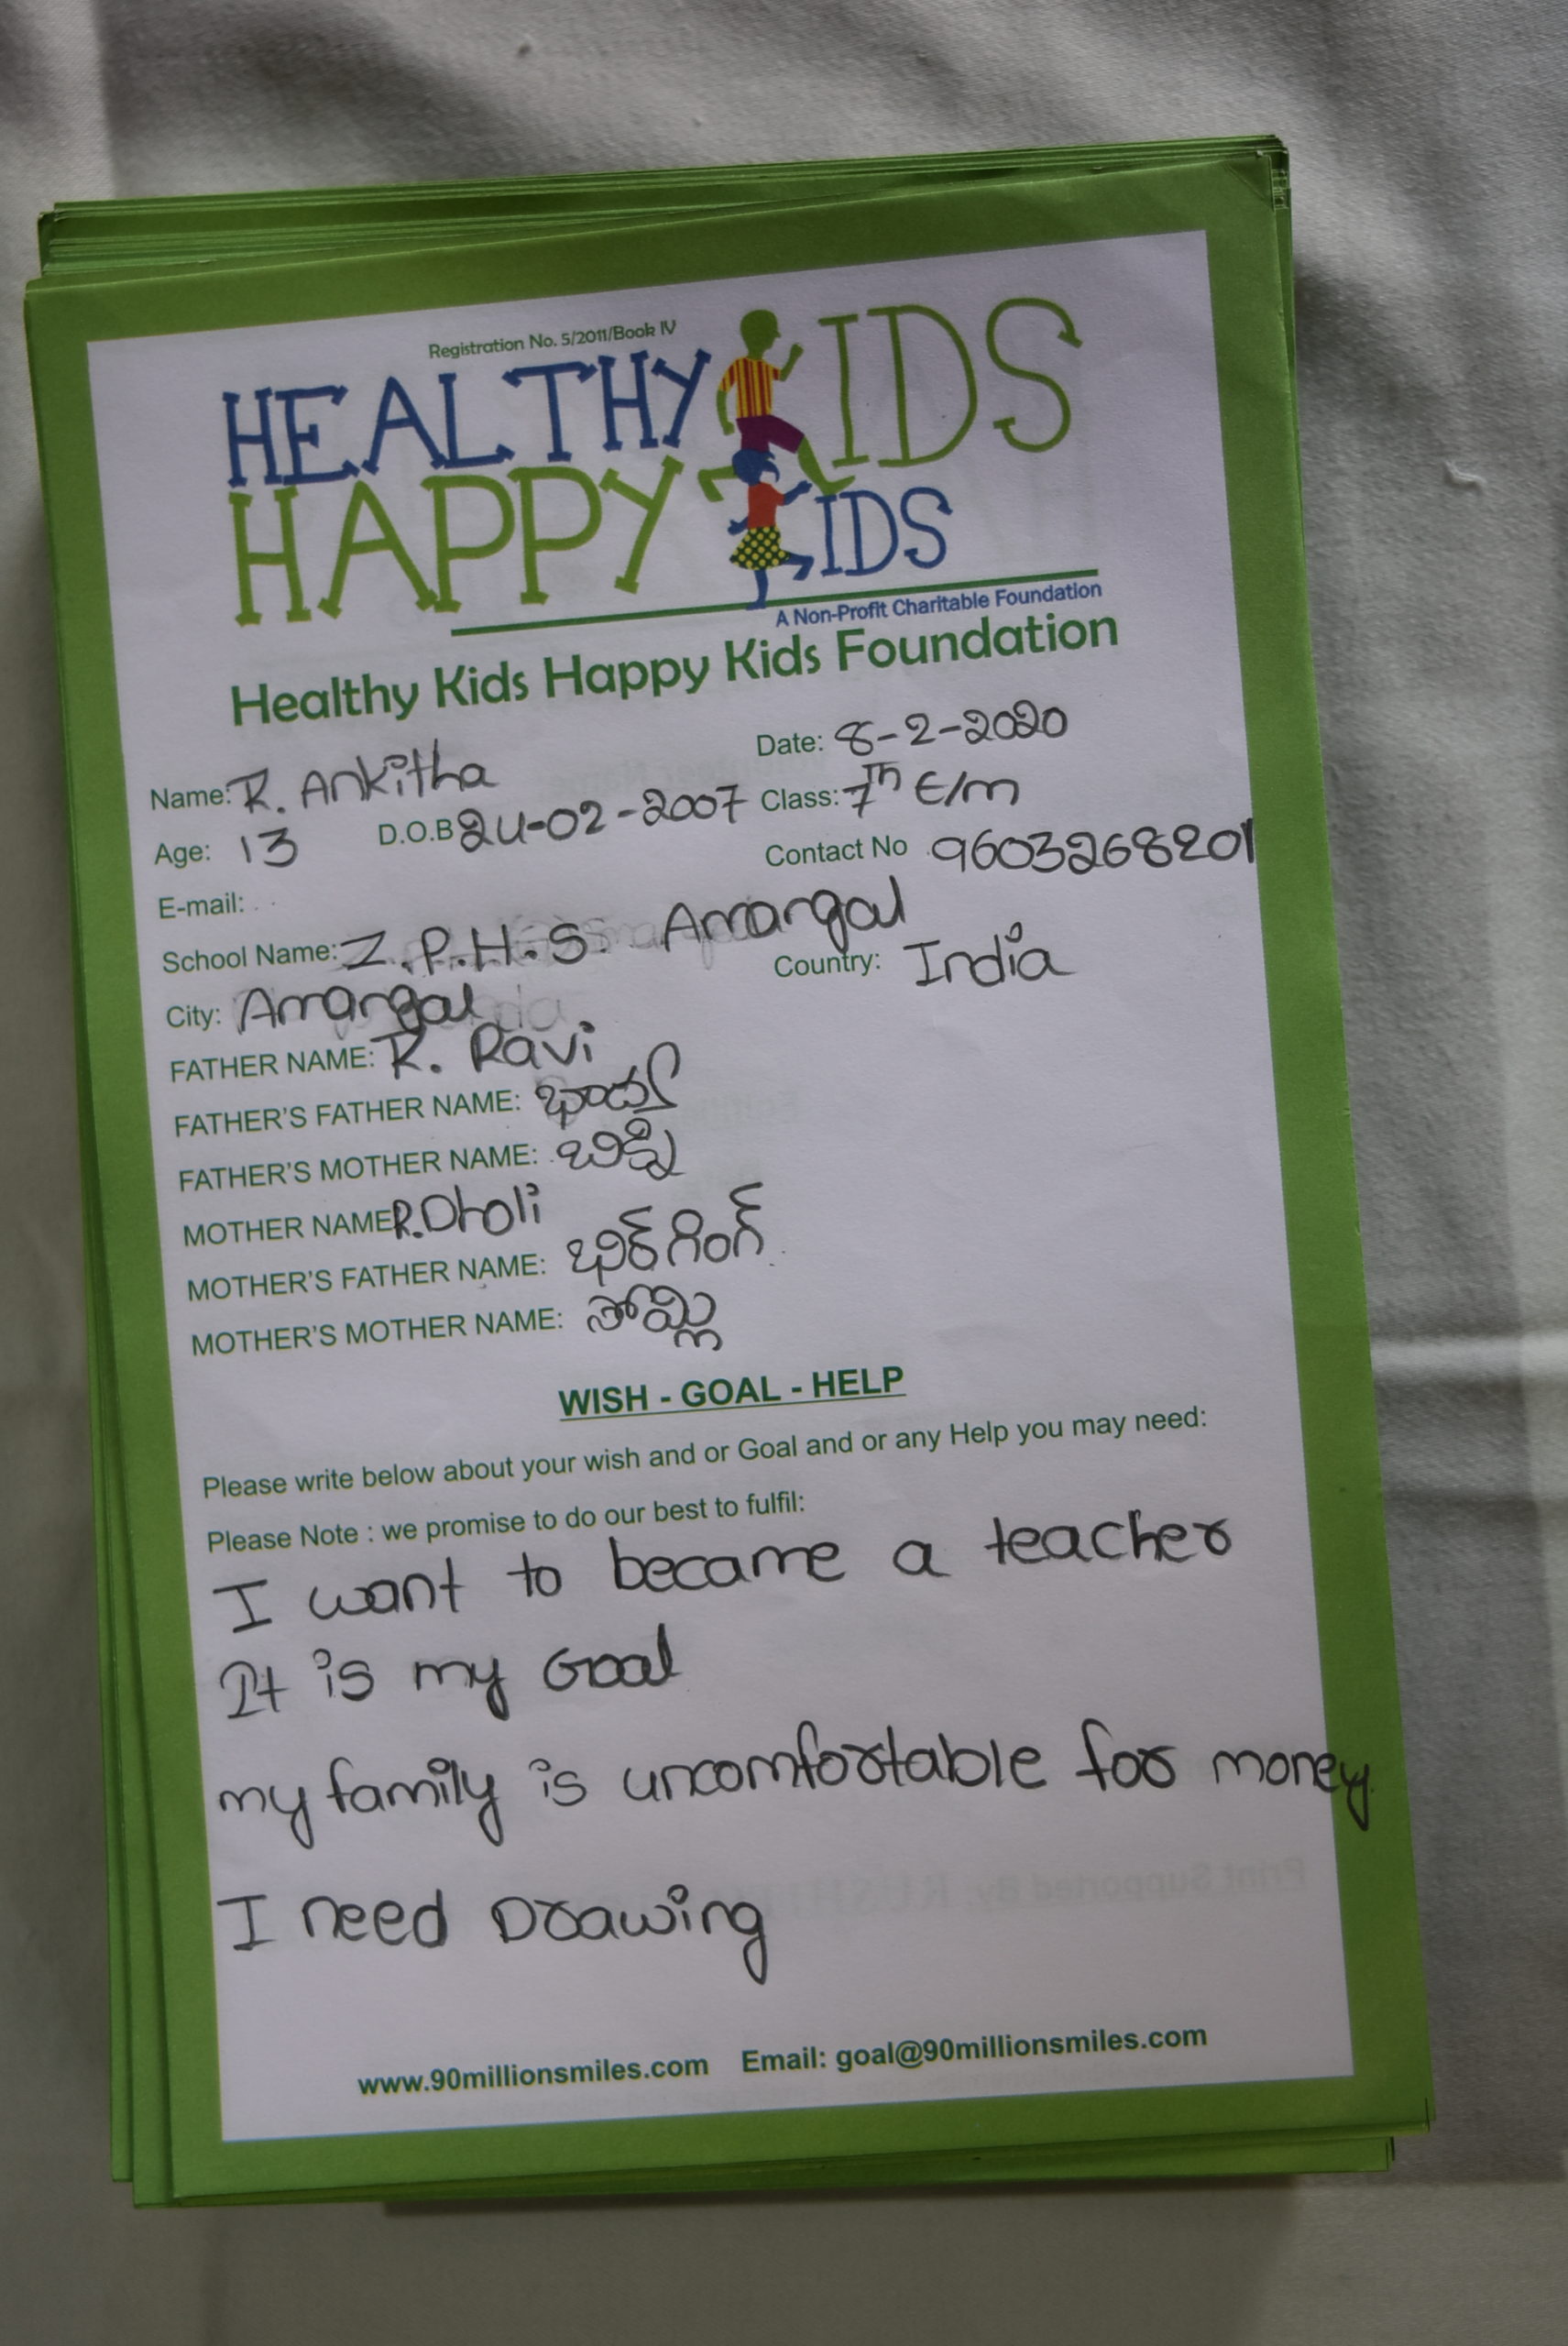 Registration No. 5/2011/Book IV
HEALTHY KIDS
HAPPY KIDS
A Non-Profit Charitable Foundation
Healthy Kids Happy Kids Foundation
Name: R. Ankitha Date: 8-2-2020
Age: 13 D.O.B 24-02-2007 Class: 7th E/m
Contact No 9603268201
E-mail:
School Name: Z.P.H.S. Amangal
City: Amangal Country: India
FATHER NAME: R. Ravi
FATHER'S FATHER NAME:
FATHER'S MOTHER NAME:
MOTHER NAME R.Dholi
MOTHER'S FATHER NAME:
MOTHER'S MOTHER NAME: సోమ్లి
WISH - GOAL - HELP
Please write below about your wish and or Goal and or any Help you may need:
Please Note : we promise to do our best to fulfil:
I want to became a teacher
It is my Goal
my family is uncomfortable for money.
I need Drawing
www.90millionsmiles.com Email: goal@90millionsmiles.com